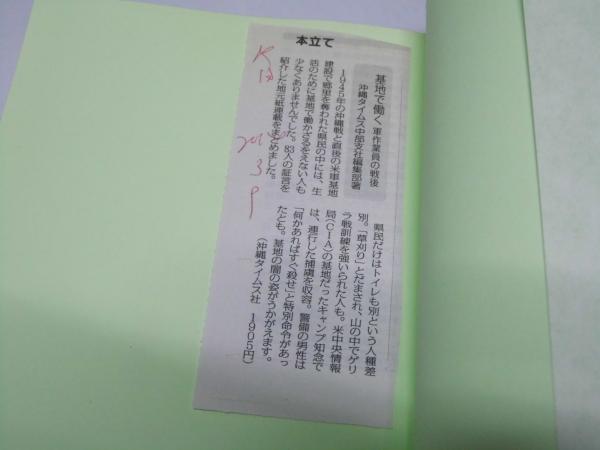 本立て
基地で働く 軍作業員の戦後
沖縄タイムス中部支社編集部著
1945年の沖縄戦と直後の米軍基地
建設で郷里を奪われた県民の中には、生
活のために基地で働かざるをえない人も
少なくありませんでした。83人の証言を
紹介した地元紙連載をまとめました。
県民だけはトイレも別という人種差
別。「草刈り」とだまされ、山の中でゲリ
ラ戦訓練を強いられた人も。米中央情報
局(CIA)の基地だったキャンプ知念で
は、連行した捕虜を収容。警備の男性は
「何かあればすぐ殺せ」と特別命令があっ
たとも。基地の闇の姿がうかがえます。
(沖縄タイムス社 1905円)
3